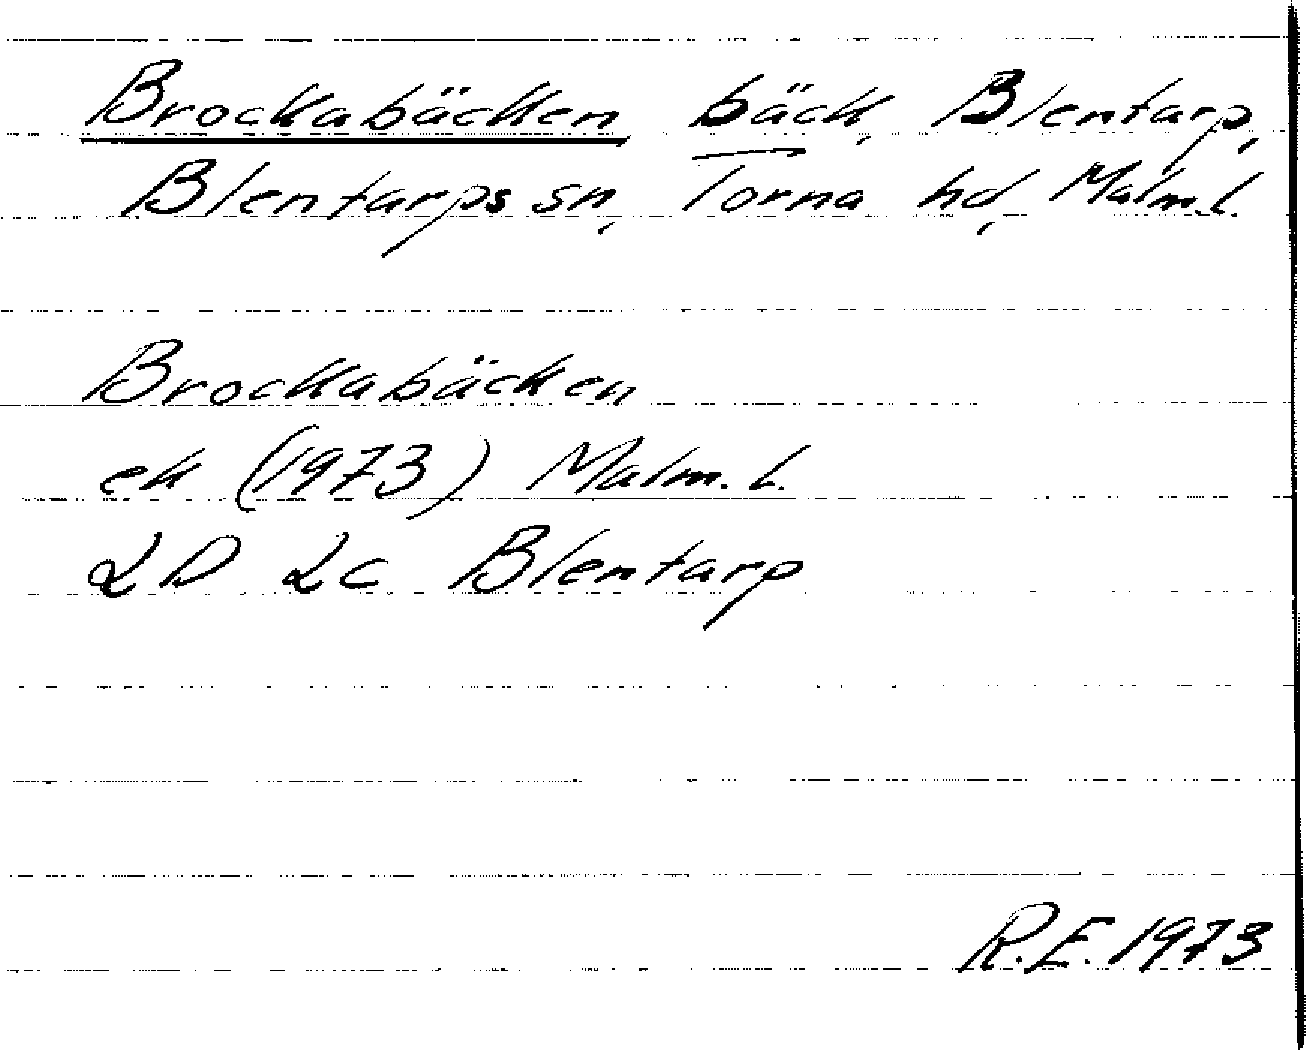 Brockabäcken bäck, Blentarp,
Blentarps sn, Torna hd, Malm.l.
Brockabäcken
ek (1973) Malm.L.
2D 2c Blentarp
R.E. 1973